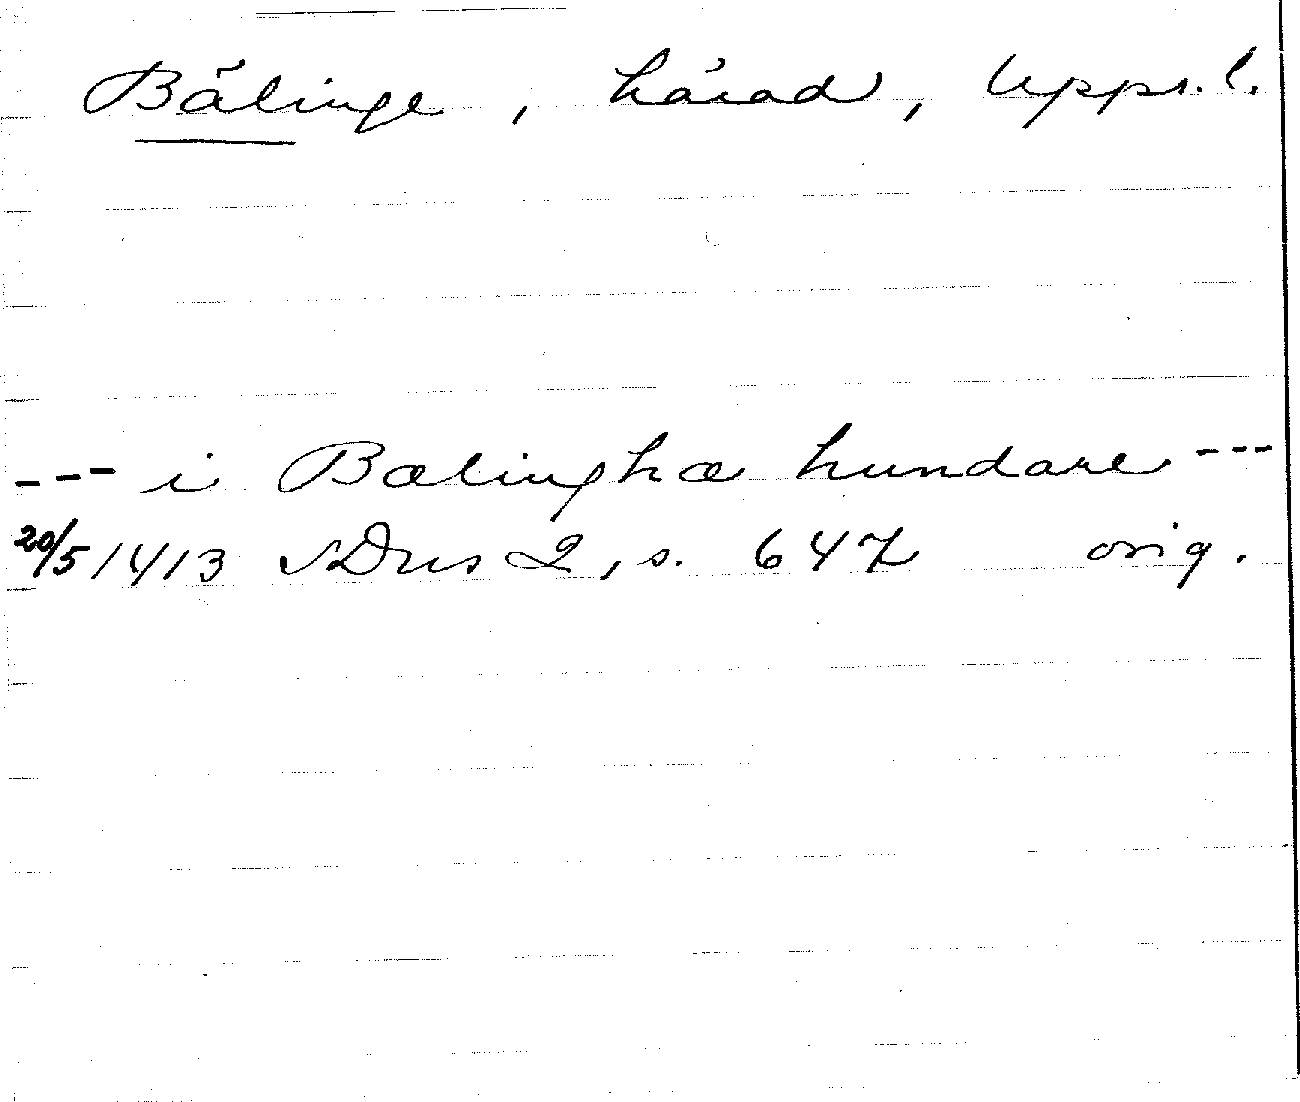 Bälinge, härad, Upps. l.
--- i Bælinghæ hundare ---
20/5 1413 SDns 2, s. 647 orig.